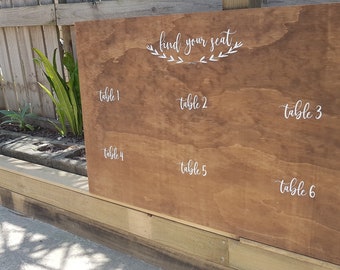 find your seat
table 1
table 2
table 3
table 4
table 5
table 6